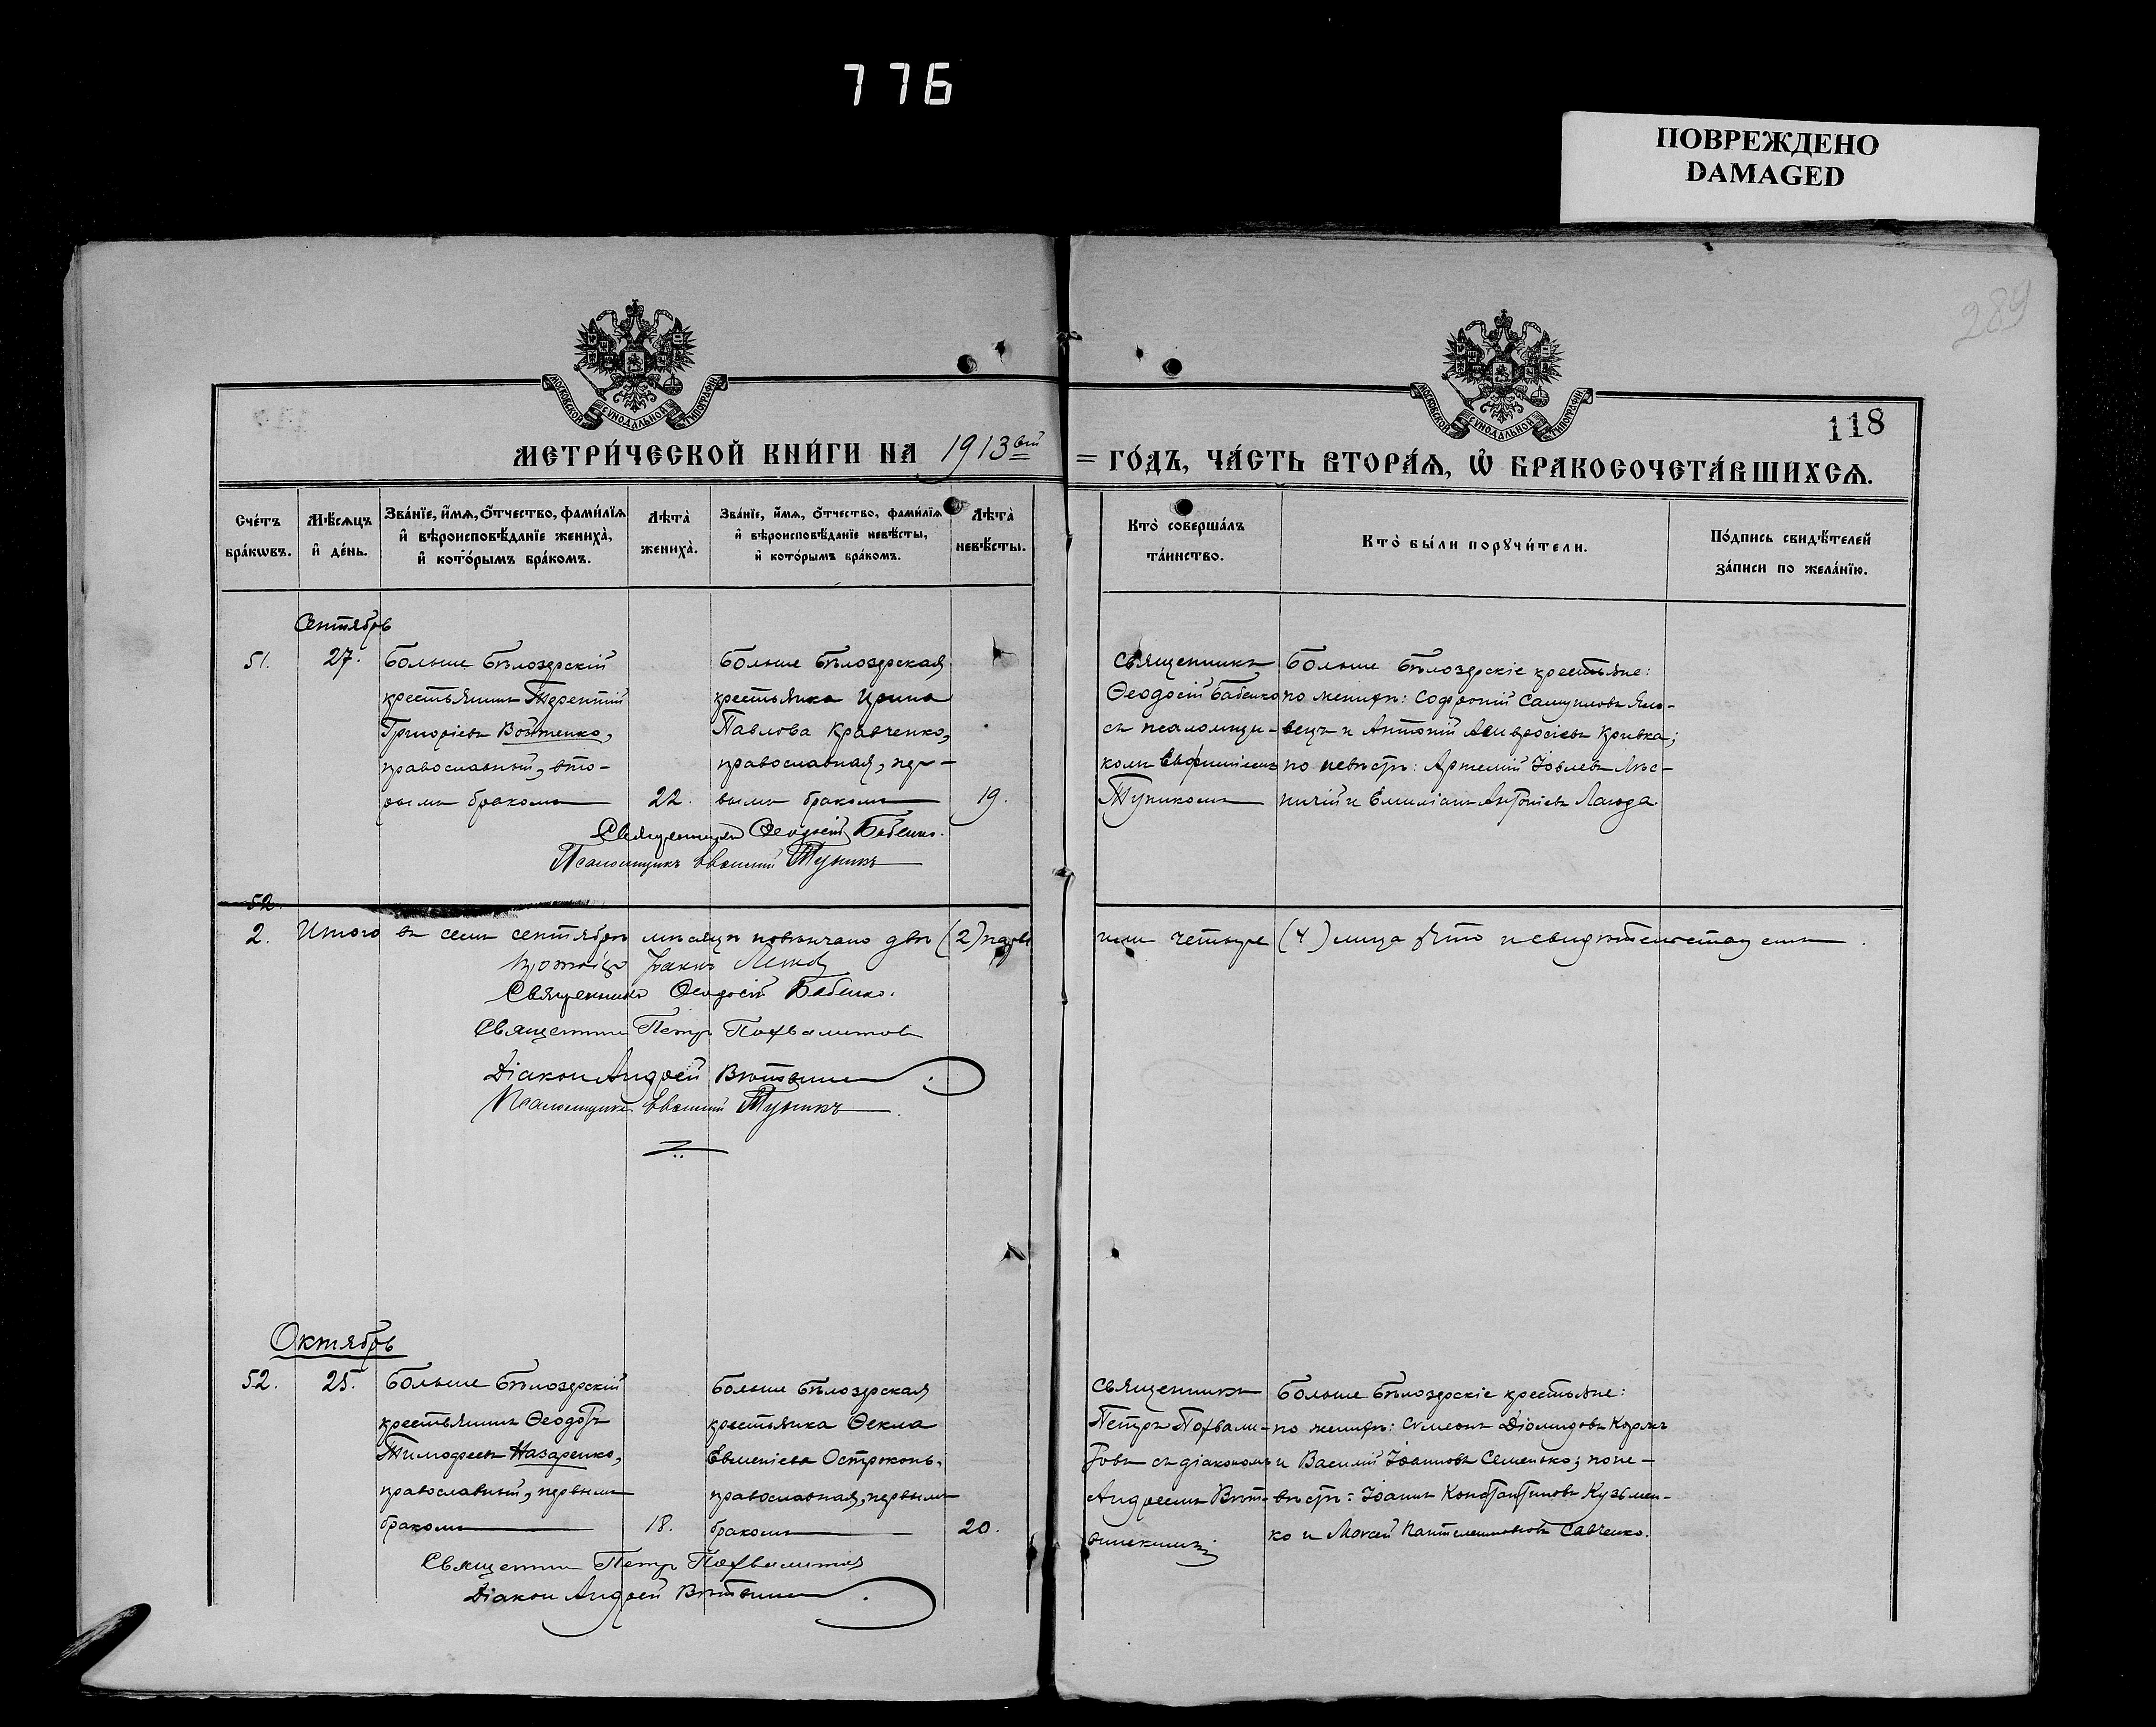 776
ПОВРЕЖДЕНО
DAMAGED
289
118
МОСКОВСКОЙ СУНОДАЛЬНОЙ ТИПОГРАФІИ
МОСКОВСКОЙ СУНОДАЛЬНОЙ ТИПОГРАФІИ
МЕТРИ́ЧЕСКОЙ КНИ́ГИ НА 1913вый = ГО́ДЪ, ЧА́СТЬ ВТОРА́Ѧ, Ѽ БРАКОСОЧЕТА́ВШИХСѦ.
Сче́тъ бра́кѡвъ.
Мѣ́сѧцъ и҆ де́нь.
Зва́нїе, и҆́мѧ, ѻ҆́тчество, фами́лїѧ
и҆ вѣроисповѣ́данїе жениха̀,
и҆ кото́рымъ бра́комъ.
Лѣта̀ жениха̀.
Зва́нїе, и҆́мѧ, ѻ҆́тчество, фами́лїѧ
и҆ вѣроисповѣ́данїе невѣ́сты,
и҆ кото́рымъ бра́комъ.
Лѣта̀ невѣ́сты.
Кто̀ соверша́лъ
та́инство.
Кто̀ бы́ли порꙋчи́тели.
По́дпись свидѣ́телей
за́писи по жела́нїю.
Сентябрь
51. 27.
Больше Бѣлозерскій
крестьянинъ Терентій
Григоріевъ Войтенко,
православный, вто-
рымъ бракомъ 22.
Больше Бѣлозерская
крестьянка Ирина
Павлова Кравченко,
православная, пер-
вымъ бракомъ 19.
Священникъ
Ѳеодосій Бабенко
съ псаломщи-
комъ Евфиміемъ
Тупикомъ
Больше Бѣлозерскіе крестьяне:
по женихѣ: Софроній Самуиловъ Яло-
вецъ и Антоній Амвросіевъ Кривка;
по невѣстѣ: Артемій Іовлевъ Лѣс-
ничій и Емиліанъ Антоніевъ Лагода.
Священникъ Ѳеодосій Бабенко.
Псаломщикъ Тупикъ
52.
2. Итого въ семъ сентябрѣ мѣсяцѣ повѣнчано двѣ (2) пары
или четыре (4) лица что и свидѣтельствуемъ.
Протоіерей
Священникъ Ѳеодосій Бабенко.
Священникъ Петръ Похвалитовъ
Діаконъ Андрей Вютвинъ
Псаломщикъ Тупикъ
Октябрь
52. 25.
Больше Бѣлозерскій
крестьянинъ Ѳеодотъ
Тимофеевъ Назаренко,
православный, первымъ
бракомъ 18.
Больше Бѣлозерская
крестьянка Ѳекла
Евменіева Остроконь,
православная, первымъ
бракомъ 20.
Священникъ
Петръ Похвали-
товъ съ діакономъ
Андреемъ
Больше Бѣлозерскіе крестьяне:
по женихѣ: Сѵмеонъ Діомидовъ Коржъ
и Василій Іоанновъ Семенько; по не-
вѣстѣ: Іоаннъ Константиновъ Кузьмен-
ко и Моисей Пантелеимоновъ Савченко.
Священникъ Петръ Похвалитовъ
Діаконъ Андрей